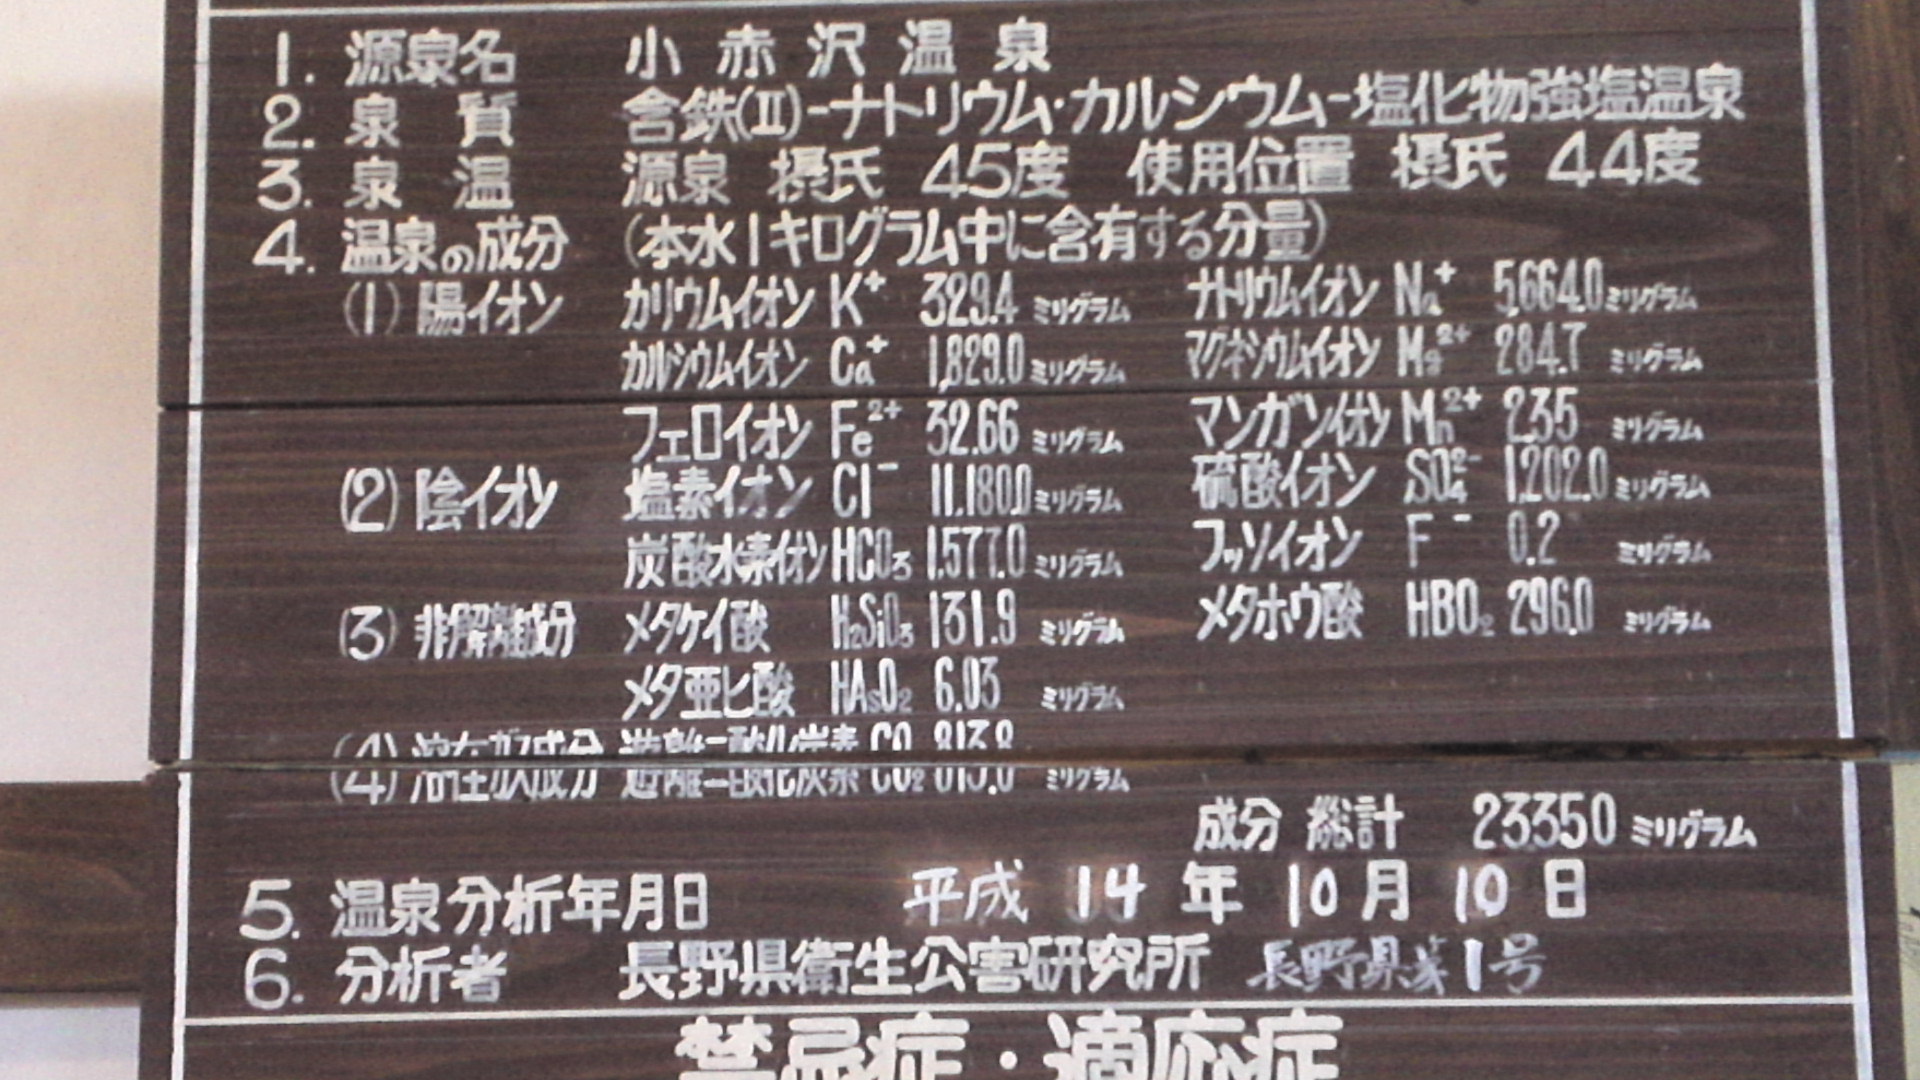 1. 源泉名 小赤沢温泉
2. 泉質 含鉄(II)-ナトリウム・カルシウム-塩化物強塩温泉
3. 泉温 源泉 摂氏 45度 使用位置 摂氏 44度
4. 温泉の成分 (本水1キログラム中に含有する分量)
(1) 陽イオン カリウムイオン K+ 329.4 ミリグラム ナトリウムイオン Na+ 5,664.0 ミリグラム
カルシウムイオン Ca+ 1,829.0 ミリグラム マグネシウムイオン Mg2+ 284.7 ミリグラム
フェロイオン Fe2+ 32.66 ミリグラム マンガンイオン Mn2+ 2.35 ミリグラム
(2) 陰イオン 塩素イオン Cl- 11,180.0 ミリグラム 硫酸イオン SO42- 1,202.0 ミリグラム
炭酸水素イオン HCO3 1,577.0 ミリグラム フッソイオン F- 0.2 ミリグラム
(3) 非解離成分 メタケイ酸 H2SiO3 131.9 ミリグラム メタホウ酸 HBO2 296.0 ミリグラム
メタ亜ヒ酸 HAsO2 6.03 ミリグラム
(4) 溶存ガス成分 遊離二酸化炭素 CO2 813.8 ミリグラム
成分総計 23350 ミリグラム
5. 温泉分析年月日 平成14年10月10日
6. 分析者 長野県衛生公害研究所 長野県第1号
禁忌症・適応症